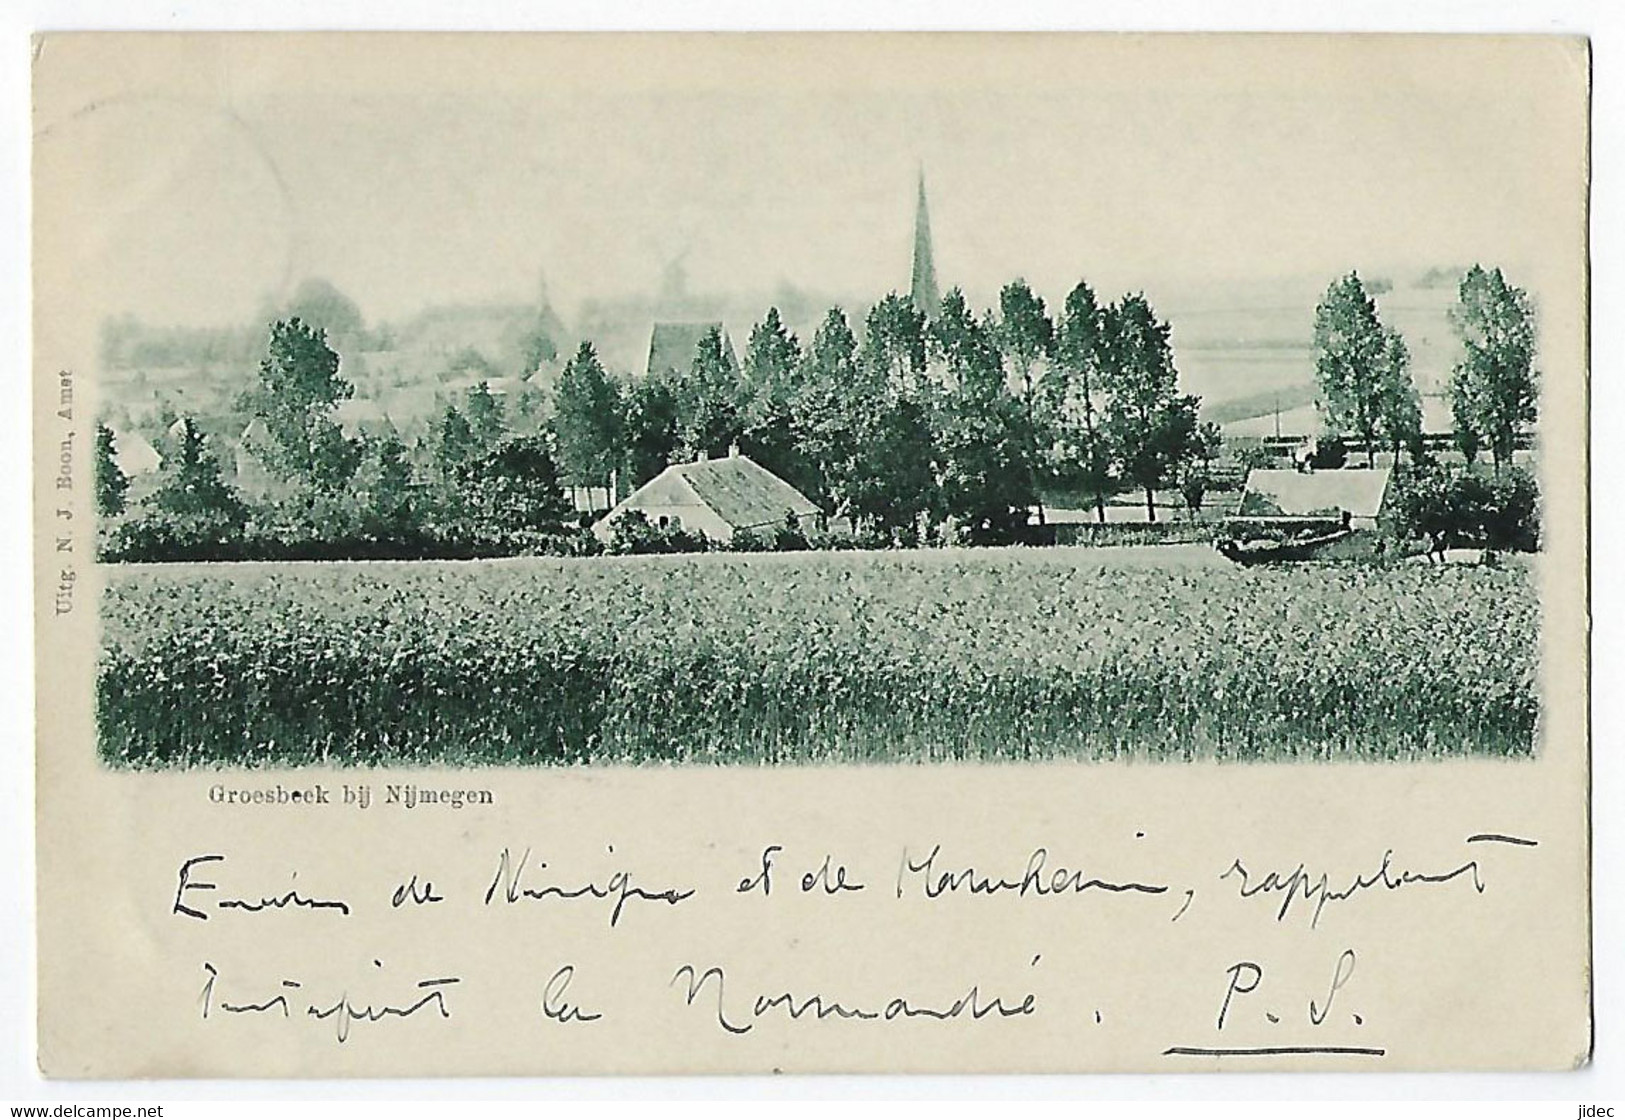 Uitg. N. J. Boon, Amst
Groesbeek bij Nijmegen
Environs de et de , rappelant
tout à fait la Normandie. P. S.
www.delcampe.net
jidec